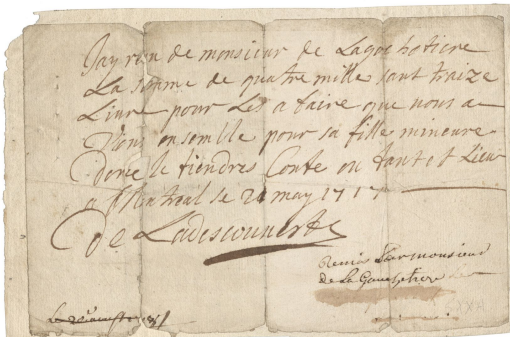 Jay recu de monsieur de Lagochetiere
La somme de quatre mille sant traize
Liure pour Les a faire que nous a
Vions ensemble pour sa fille mineure
Donc le tiendres Conte ou tant et Lieux
a Montreal le 21 may 1717
De Ladescouuerte
Remis Par monsieur
de La Gauchetiere